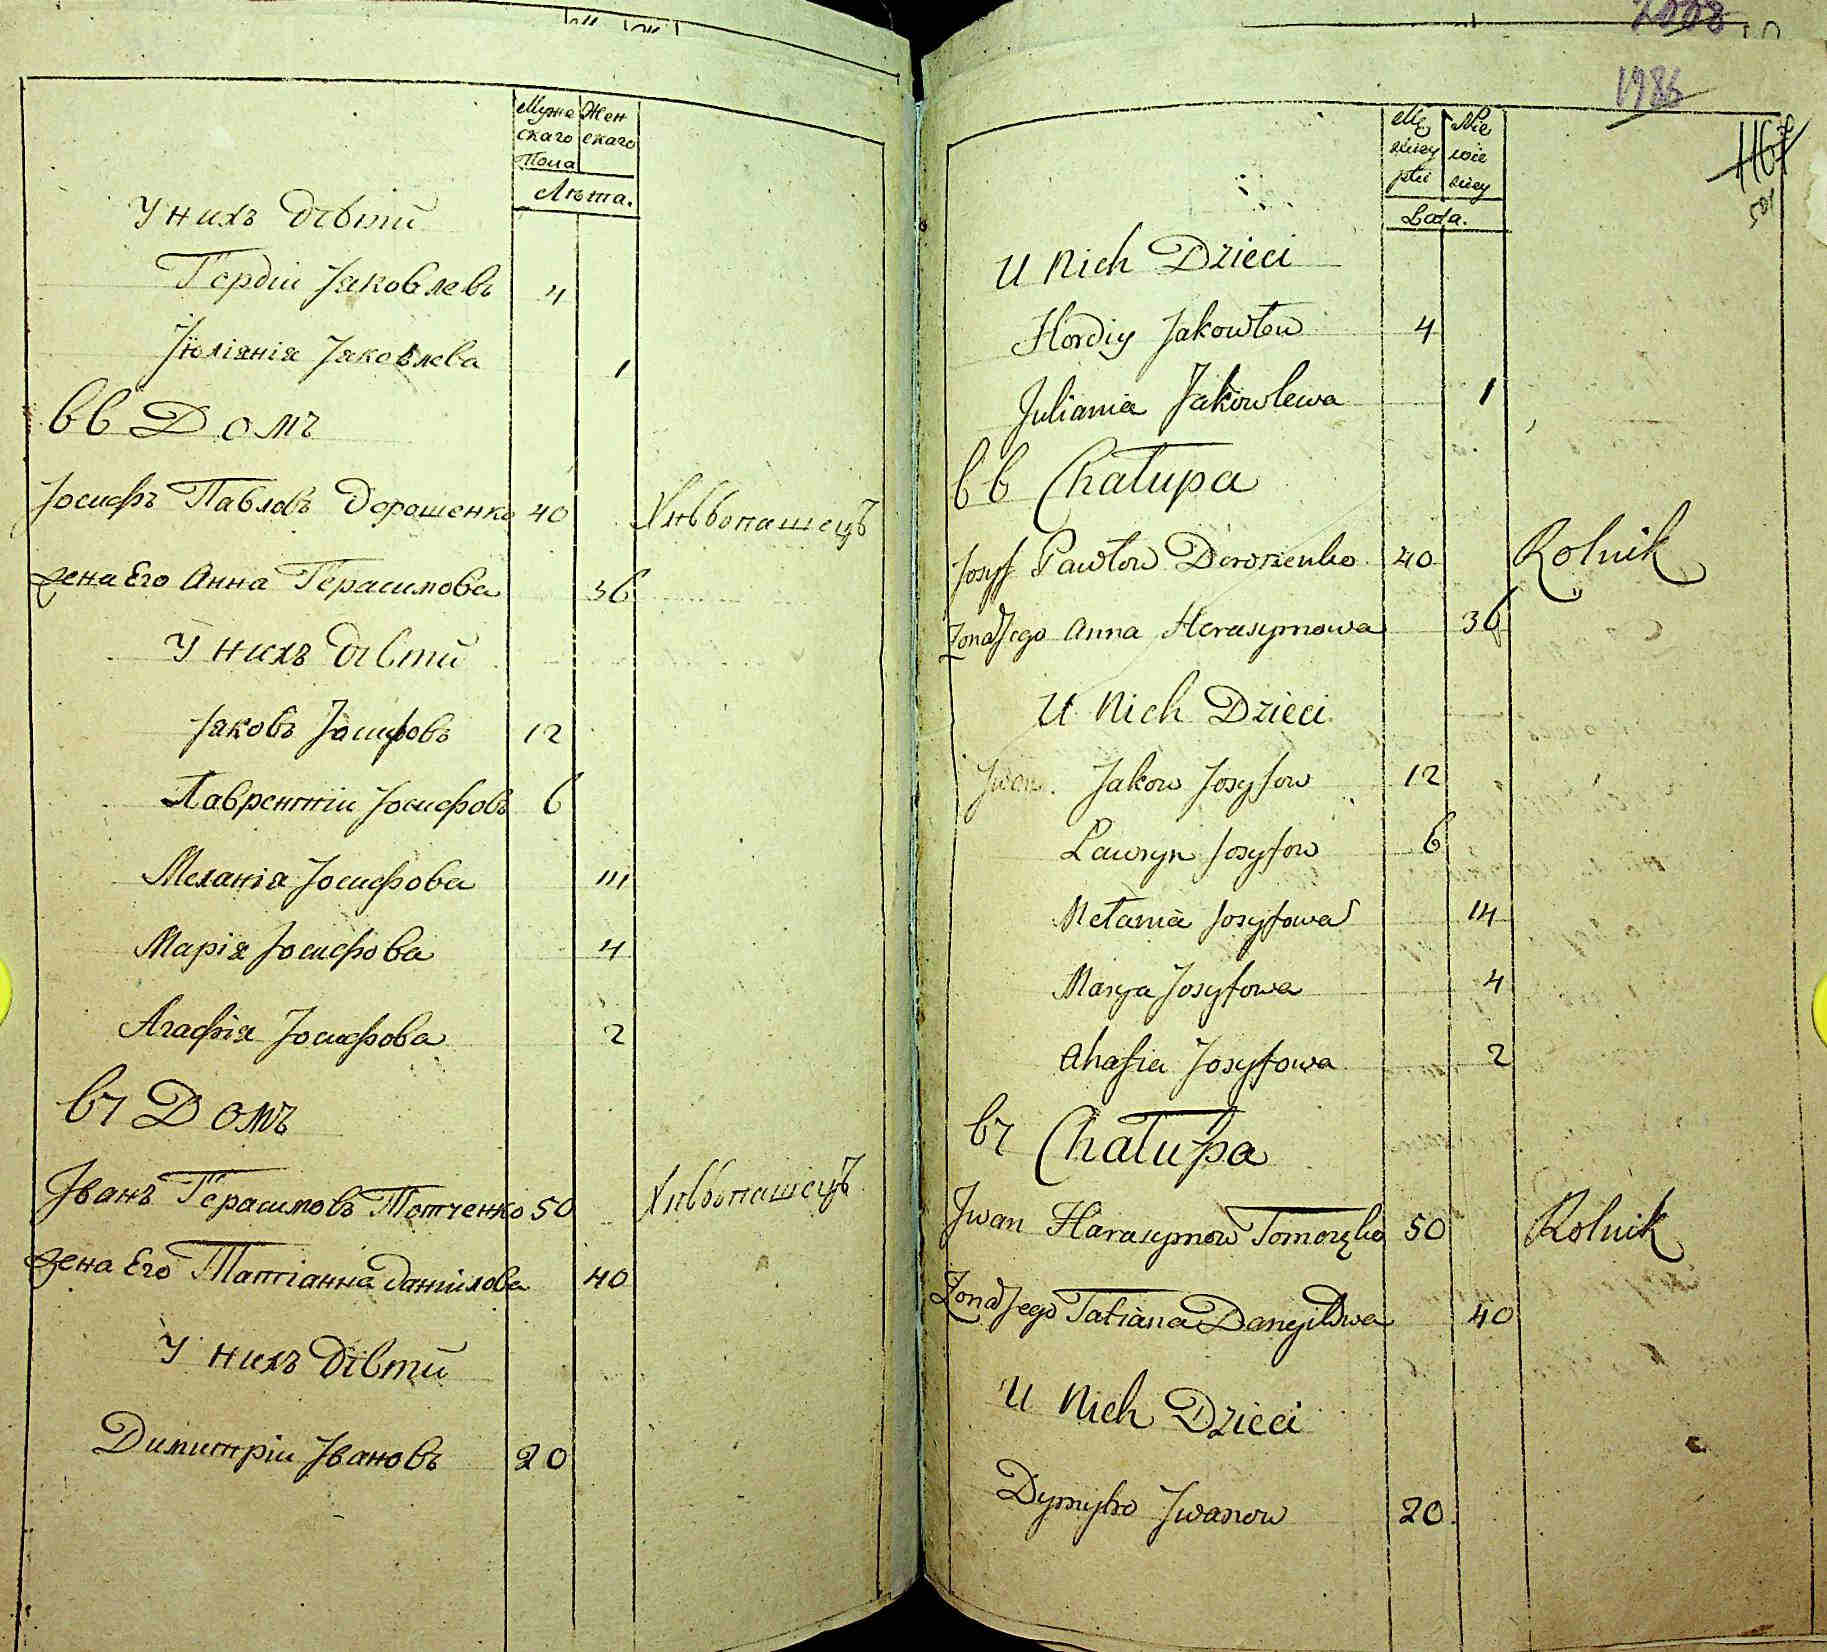 Муже Жен
скаго скаго
Пола
Лѣта.
У нихъ дѣти
Гордій Яковлевъ 4
Юліянія Яковлева 1
66 Домъ
Іосифъ Павловъ Дорошенко 40 Хлѣбопашецъ
жена Его Анна Герасимова 36
У нихъ дѣти
Яковъ Іосифовъ 12
Лаврентій Іосифовъ 6
Меланія Іосифова 14
Марія Іосифова 4
Агафія Іосифова 2
67 Домъ
Іванъ Герасимовъ 50 Хлѣбопашецъ
жена Его Татіанна Данилова 40
У нихъ дѣти
Димитрій Івановъ 20
2008
1986
116
501
Mę Nie
wie
Lata.
U Nich Dzieci
Hordiy Jakowlew 4
Juliania Jakowlewa 1
66 Chałupa
Josyf Pawłow Doroszenko 40 Rolnik
Żona Jego Anna Herasymowa 36
U Nich Dzieci
Jakow Josyfow 12
Lawryn Josyfow 6
Mełania Josyfowa 14
Marya Josyfowa 4
Ahafia Josyfowa 2
67 Chałupa
Jwan Harasymow 50 Rolnik
Żona Jego Tatiana Danyłowa 40
U Nich Dzieci
Dymytro Jwanow 20